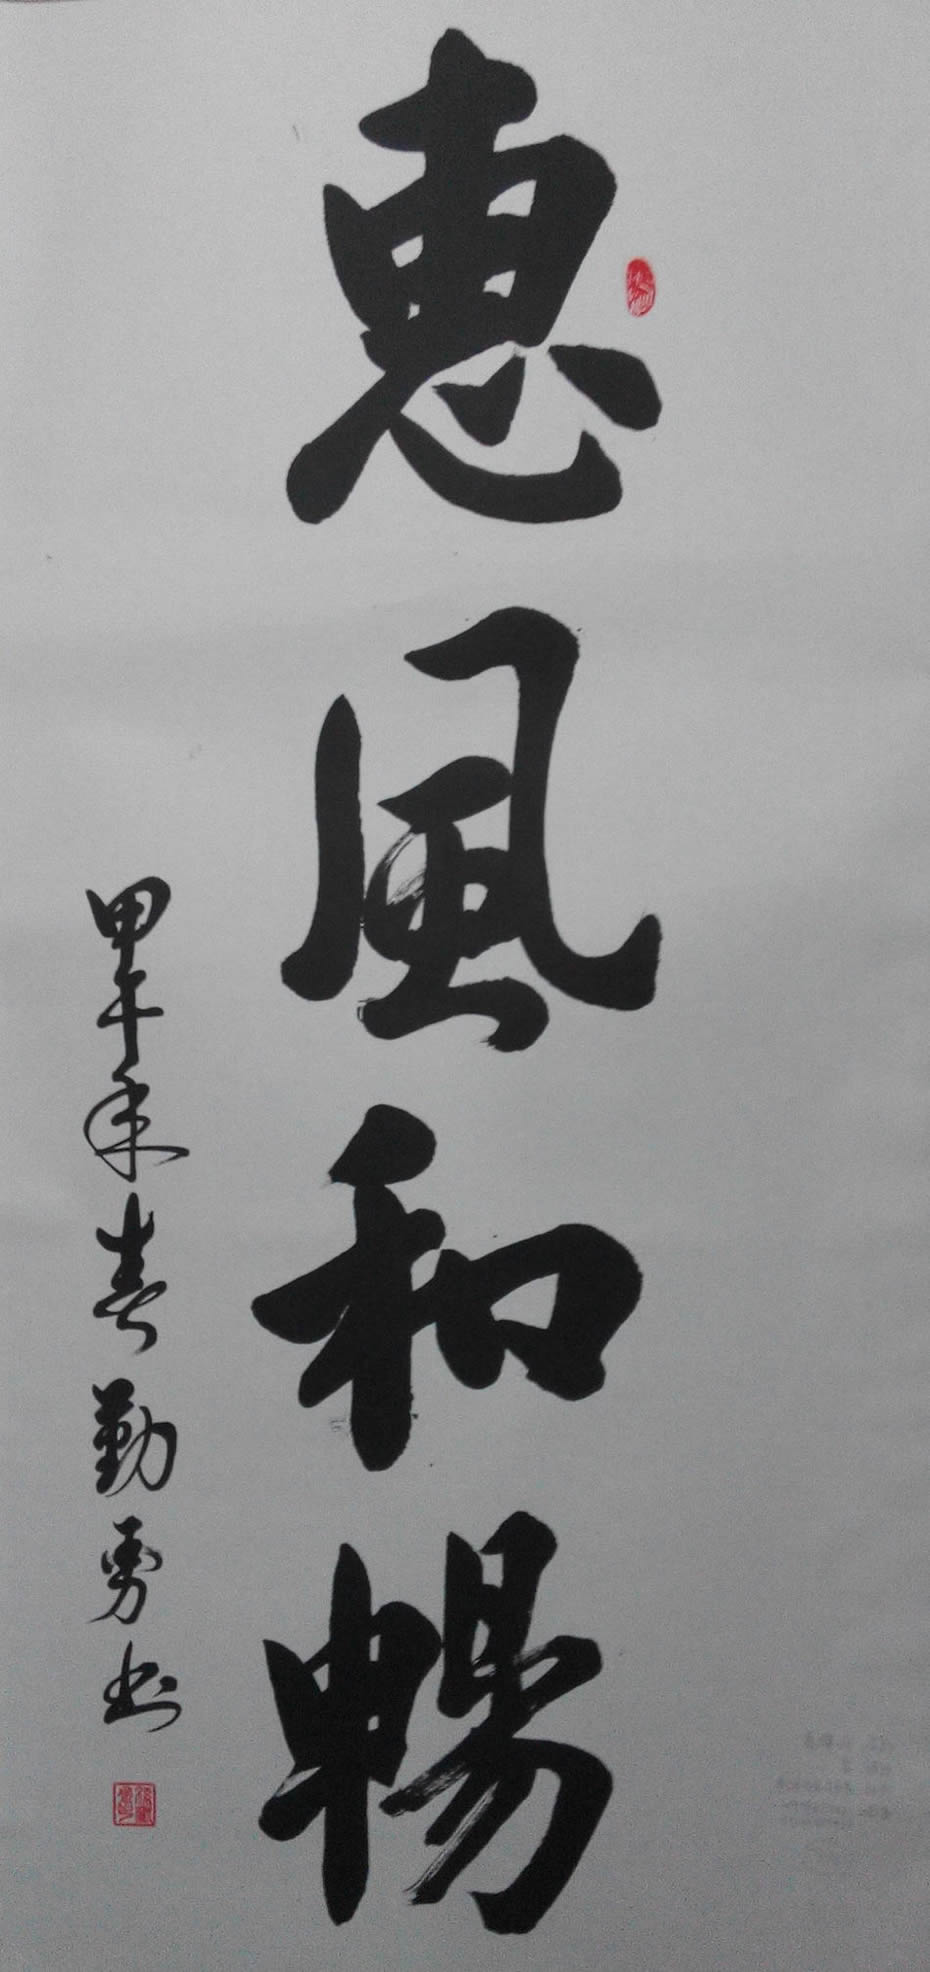 惠風和暢
甲午年春勤勇书